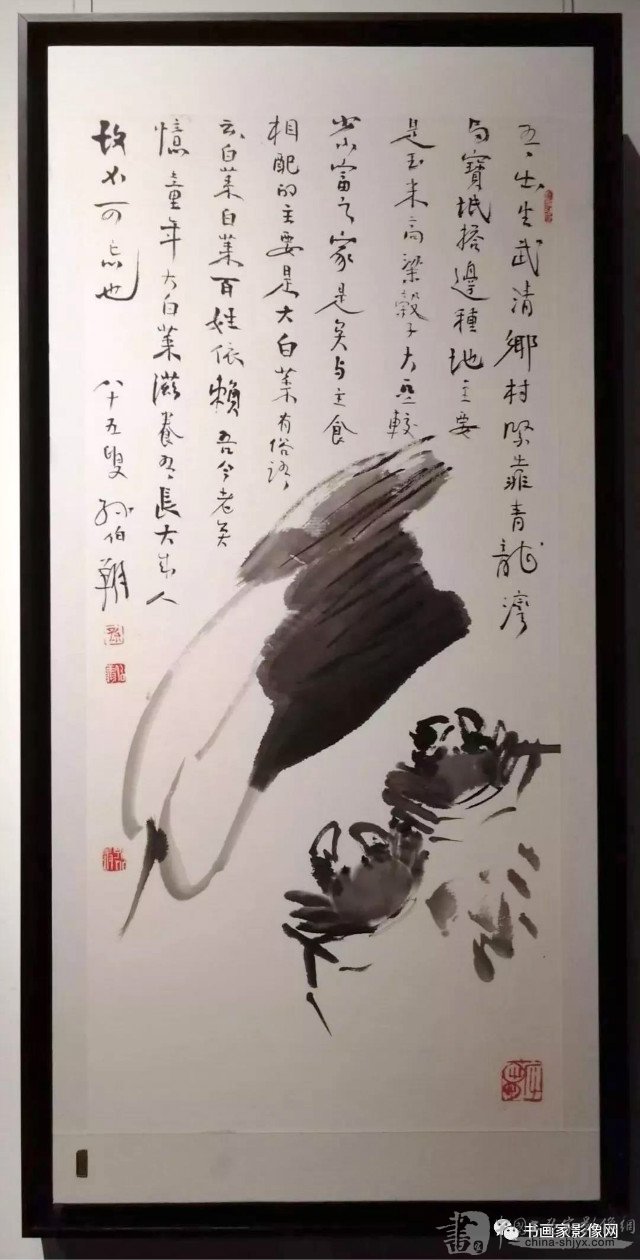 吾出生武清鄉村緊靠青龍灣
与寶坻搭邊種地主要
是玉米高粱穀子大豆較
常富之家是矣与主食
相配的主要是大白菜有俗語
云白菜白菜百姓依賴吾今老矣
憶童年大白菜滋養吾長大成人
故不可忘也
八十五叟孙伯翔
書画家影像網
书画家影像网
china-shjyx.com